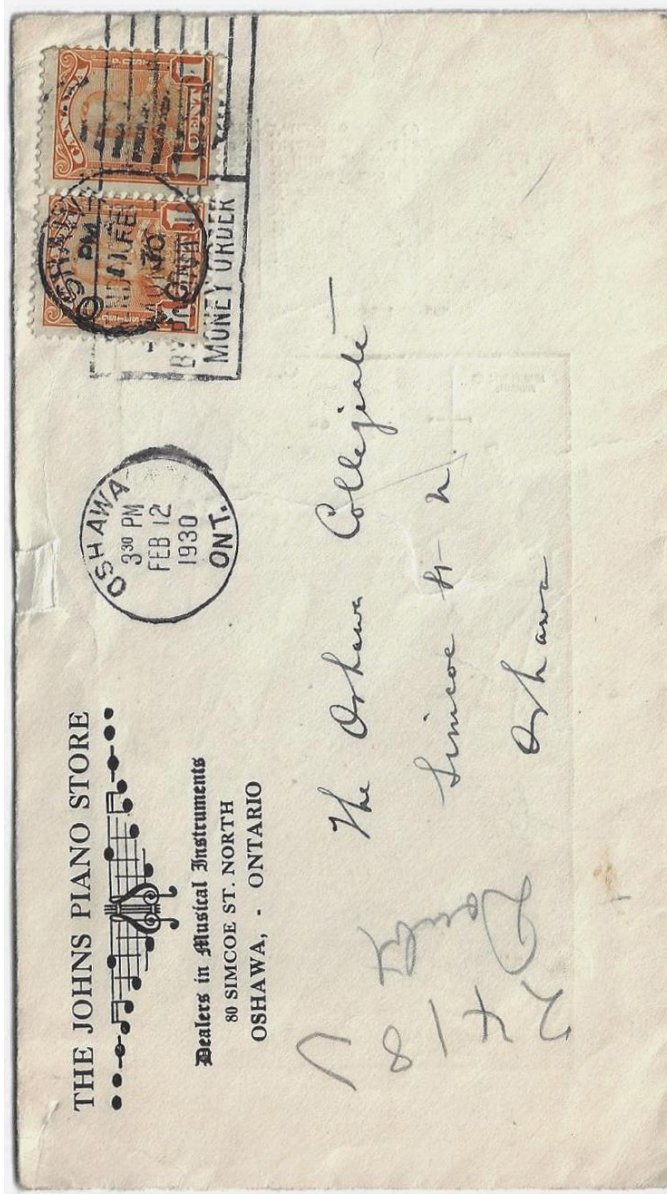 THE JOHNS PIANO STORE
Dealers in Musical Instruments
80 SIMCOE ST. NORTH
OSHAWA, - ONTARIO
OSHAWA
3 30 PM
FEB 12
1930
ONT.
CANADA
1 CENT 1
1 CENT 1
OSHAWA
PM
MONEY ORDER
The Oshawa Collegiate
Simcoe St N.
Oshawa